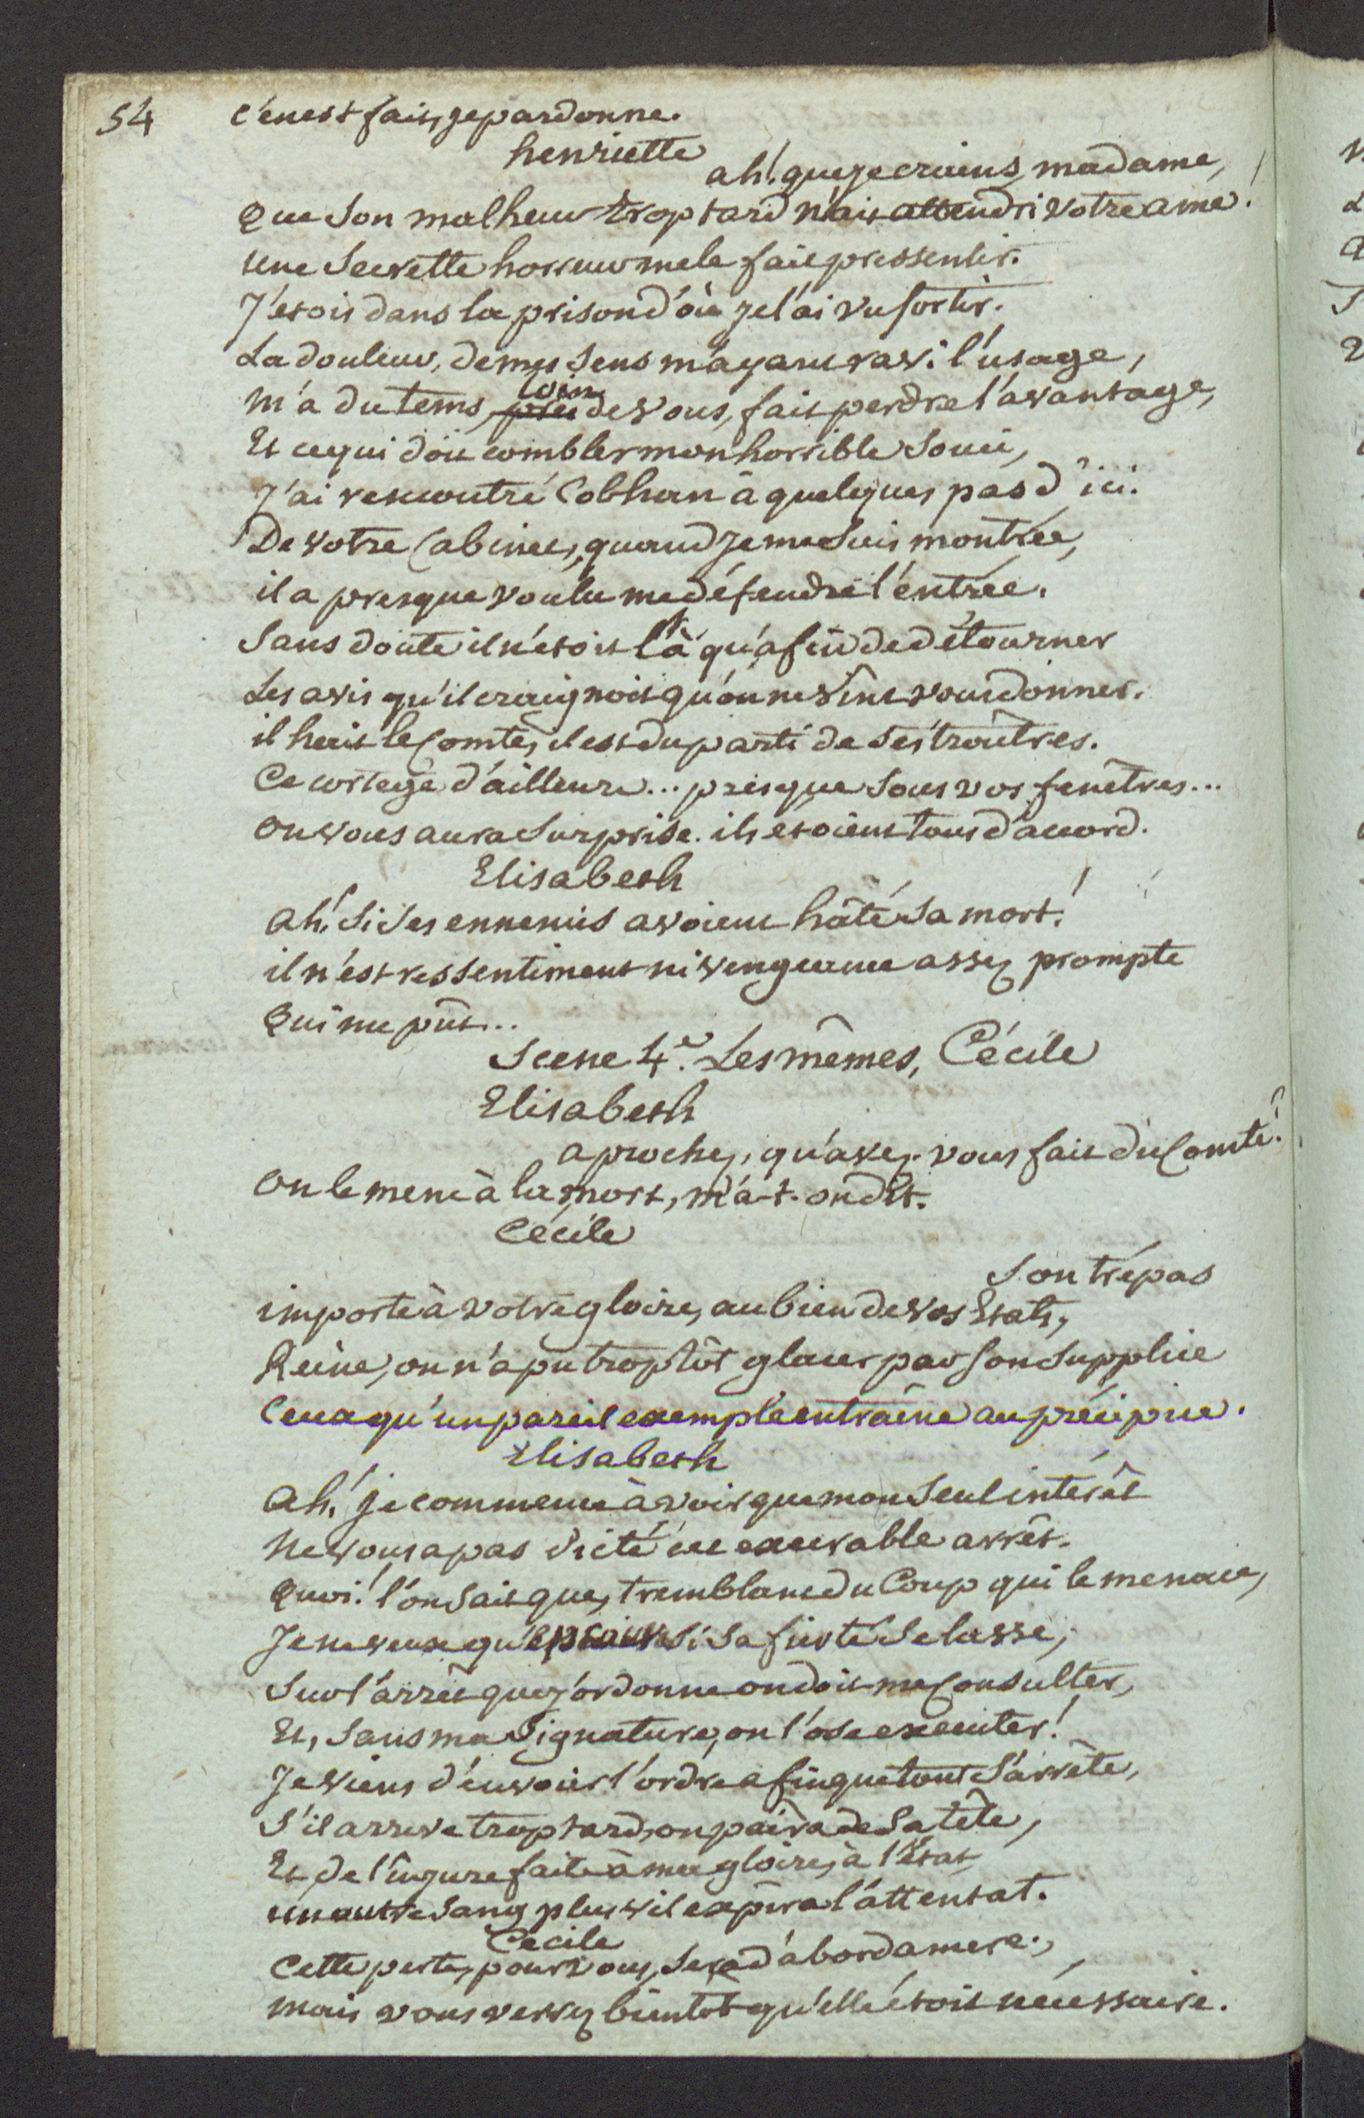 54
c'en est fait, je pardonne.
henriette
ah! que je crains, madame,
Que son malheur trop tard n'ait attendri votre ame!
une secrette horreur me le fait pressentir.
J'étois dans la prison d'où je l'ai vu sortir.
La douleur, de mes sens m'ayant ravi l'usage,
m'a du tems, près loin de vous, fait perdre l'avantage,
Et ce qui doit combler mon horrible souci,
J'ai rencontré Cobhan à quelques pas d'ici.
De votre Cabinet, quand je me suis montrée,
il a presque voulu me défendre l'entrée.
Sans doute il n'étoit là qu'afin de détourner
Les avis qu'il craignoit qu'on ne vint vous donner.
il hait le Comte, il est du parti de ses traîtres.
Ce cortege d'ailleurs... presque sous vos fenêtres...
On vous aura surprise. ils etoient tous d'accord.
Elisabeth
ah! si ses ennemis avoient hâté sa mort!
il n'est ressentiment ni vengeance assez prompte
Qui me pût..
Scene 4e. Les mêmes, Cécile
Elisabeth
aprochez, qu'avez-vous fait du Comte?
On le mene à la mort, m'a-t-on dit.
Cécile
Son trépas
importe à votre gloire, au bien de vos Etats,
Reine, on n'a pu trop tôt glacer par son supplice
Ceux qu'un pareil exemple entraîne au précipice.
Elisabeth
Ah! je commence à voir que mon seul intérêt
Ne vous a pas dicté cet execrable arrêt.
Quoi! l'on sait que, tremblant du Coup qui le menace,
Je ne veux qu'éprouver si sa fierté se lasse,
Sur l'arrêt que j'ordonne on doit me Consulter,
Et, sans ma signature, on l'ose executer!
Je viens d'envoier l'ordre afin que tout s'arrête,
S'il arrive trop tard, on païra de sa tête,
Et de l'injure faite à ma gloire, à l'Etat
un autre sang plus vil expira l'attentat.
Cécile
Cette perte, pour vous, sera d'abord amere,
mais vous verrez bientôt qu'elle étoit nécessaire.